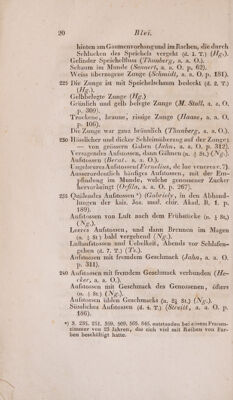 20 Blei.
hinten am Gaumenvorhang und im Rachen, die durch
Schlucken des Speichels vergeht (d. 1. T.) (Hg.).
Gelinder Speichelfluss (Thunberg, a. a. O.).
Schaum im Munde (Sennert, a. a. O. p. 62).
Weiss überzogene Zunge (Schmidt, a. a. O. p. 131).
225 Die Zunge ist mit Speichelschaum bedeckt (d. 2. T.)
(Hg.).
Gelbbelegte Zunge (Hg.)
Grünlich und gelb belegte Zunge (M. Stoll, a. a. O.
p. 309).
Trockene, braune, rissige Zunge (Haase, a. a. O.
p. 106).
Die Zunge war ganz bräunlich (Thunberg, a. a. O.).
230 Hässlicher und dicker Schleimüberzug auf der Zunge;
— von grüssern Gaben (Jahn, a. a. O. p. 312).
Versagendes Aufstossen, dann Gähnen (n. ½ St.) (Ng.).
Aufstossen (Berat. a. a. O.).
Ungeheures Aufstossen (Fernelius, de lue venerea. 7.)
Ausserordentlich häufiges Aufstossen, mit der Em-
pfindung im Munde, welche genossener Zucker
hervorbringt (Orfila, a. a. O. p. 267).
235 Quälendes Aufstossen*) (Gabriely, in den Abhand-
lungen der kais. Jos. med. chir. Akad. B. I. p.
189).
Aufstossen von Luft nach dem Frühstücke (n. ½ St.)
(Ng.).
Leeres Aufstossen, und dann Brennen im Magen
(n. ½ St.) bald vergehend (Ng.).
Luftaufstossen und Uebelkeit, Abends vor Schlafen-
gehen (d. 7. T.) (Tr.).
Aufstossen mit fremdem Geschmack (Jahn, a. a. O.
p. 311).
240 Aufstossen mit fremdem Geschmack verbunden (He-
cker, a. a. O.).
Aufstossen mit Geschmack des Genossenen, öfters
(n. ½ St.) (Ng.).
Aufstossen üblen Geschmacks (n. 2½ St.) (Ng.).
Süssliches Aufstossen (d. 4. T.) (Streitt, a. a. O. p.
166).
*) S. 235. 251. 359. 509. 563. 645. entstanden bei einem Frauen-
zimmer von 23 Jahren, die sich viel mit Reiben von Far-
ben beschäftigt hatte.